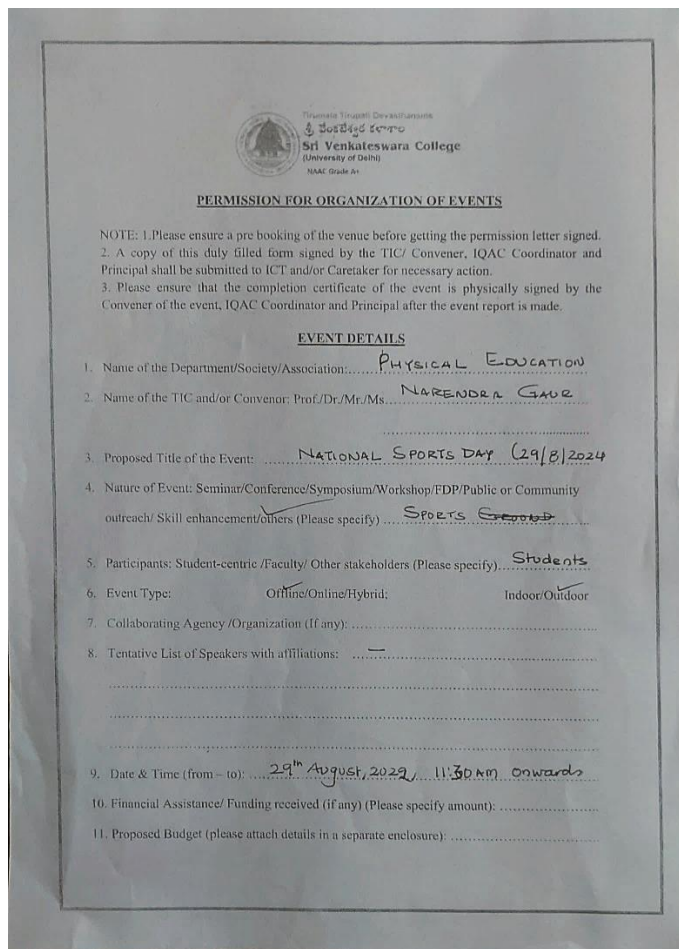 Tirumala Tirupati Devasthanams
శ్రీ వేంకటేశ్వర కళాశాల
Sri Venkateswara College
(University of Delhi)
NAAC Grade A+
PERMISSION FOR ORGANIZATION OF EVENTS
NOTE: 1.Please ensure a pre booking of the venue before getting the permission letter signed.
2. A copy of this duly filled form signed by the TIC/ Convener, IQAC Coordinator and
Principal shall be submitted to ICT and/or Caretaker for necessary action.
3. Please ensure that the completion certificate of the event is physically signed by the
Convener of the event, IQAC Coordinator and Principal after the event report is made.
EVENT DETAILS
1. Name of the Department/Society/Association:......PHYSICAL EDUCATION
2. Name of the TIC and/or Convenor: Prof./Dr./Mr./Ms...NARENDRA GAUR
3. Proposed Title of the Event: ......NATIONAL SPORTS DAY (29/8/2024
4. Nature of Event: Seminar/Conference/Symposium/Workshop/FDP/Public or Community
outreach/ Skill enhancement/others (Please specify) ....SPORTS
5. Participants: Student-centric /Faculty/ Other stakeholders (Please specify)...Students
6. Event Type: Offline/Online/Hybrid: Indoor/Outdoor
7. Collaborating Agency /Organization (If any): ......
8. Tentative List of Speakers with affiliations: ...—......
9. Date & Time (from – to): ....29th August, 2024, 11:30 AM onwards
10. Financial Assistance/ Funding received (if any) (Please specify amount): ......
11. Proposed Budget (please attach details in a separate enclosure): ......